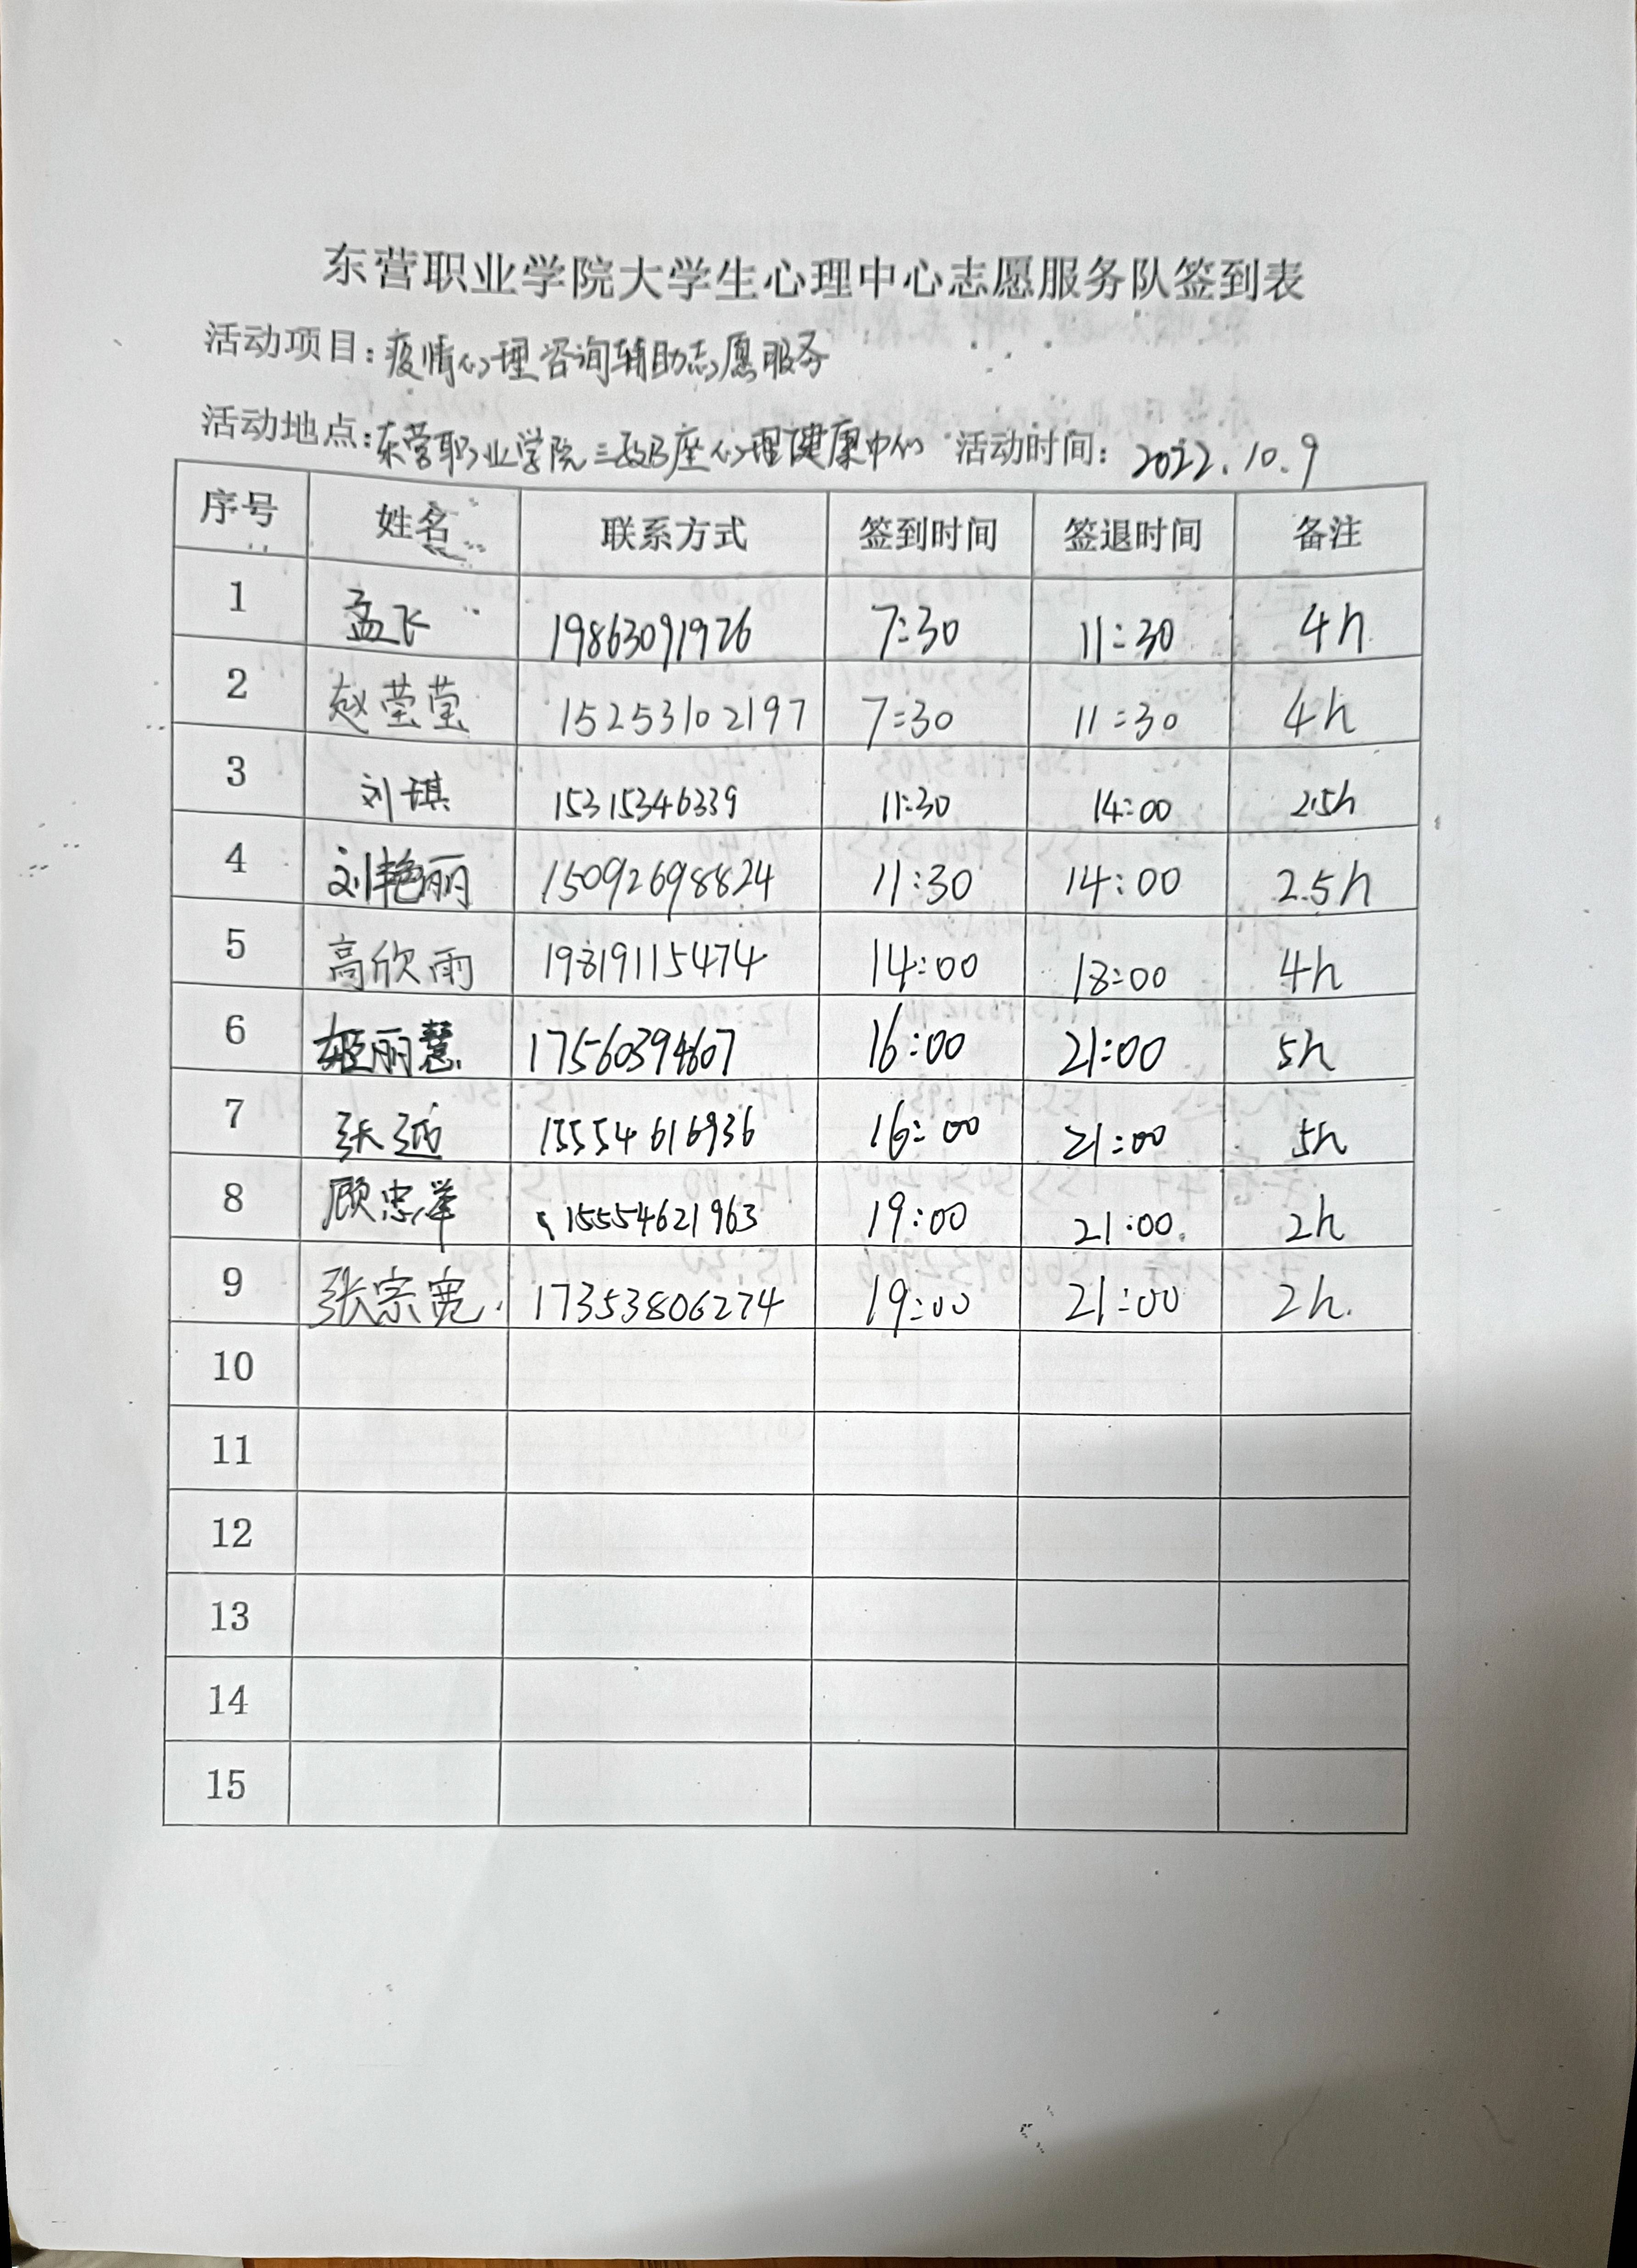 东营职业学院大学生心理中心志愿服务队签到表
活动项目：疫情心理咨询辅助志愿服务
活动地点：东营职业学院三教B座心理健康中心 活动时间：2022.10.9
序号 姓名 联系方式 签到时间 签退时间 备注
1 孟飞 19863091926 7:30 11:30 4h
2 赵莹莹 15253102197 7:30 11:30 4h
3 刘琪 15315346339 11:30 14:00 2.5h
4 刘艳丽 15092698824 11:30 14:00 2.5h
5 高欣雨 19819115474 14:00 18:00 4h
6 姬丽慧 17560394607 16:00 21:00 5h
7 张 15554616936 16:00 21:00 5h
8 顾忠 15554621963 19:00 21:00. 2h
9 张宗宽. 17353806274 19:00 21:00 2h.
10
11
12
13
14
15